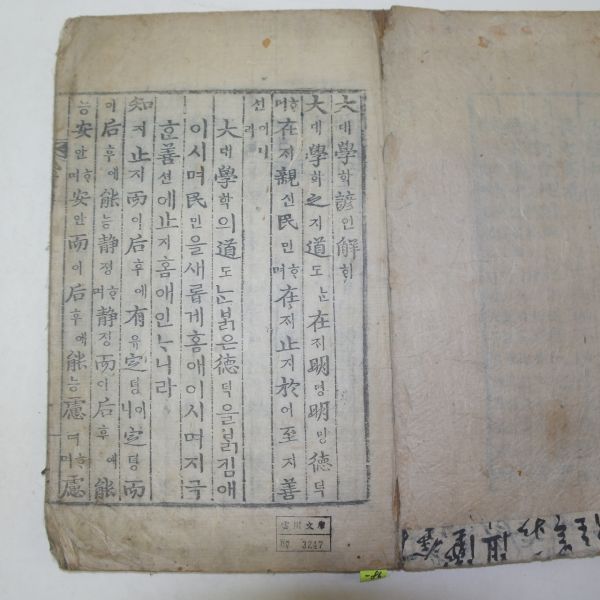 大대學학諺언解ᄒᆡ
大대學학之지道도ᄂᆞᆫ在ᄌᆡ明명明명德덕
ᄒᆞ며在ᄌᆡ親신民민ᄒᆞ며在ᄌᆡ止지於어至지善
션이니라
大대學학의道도ᄂᆞᆫ붉은德덕을붉킴애
이시며民민을새롭게홈애이시며지극
ᄒᆞᆫ善션에止지홈애인ᄂᆞ니라
知지止지而이后후에有유定뎡이니定뎡而
이后후에能능静졍ᄒᆞ며静졍而이后후에能
능安안ᄒᆞ며安안而이后후에能능慮려ᄒᆞ며慮
文庫
No. 3247